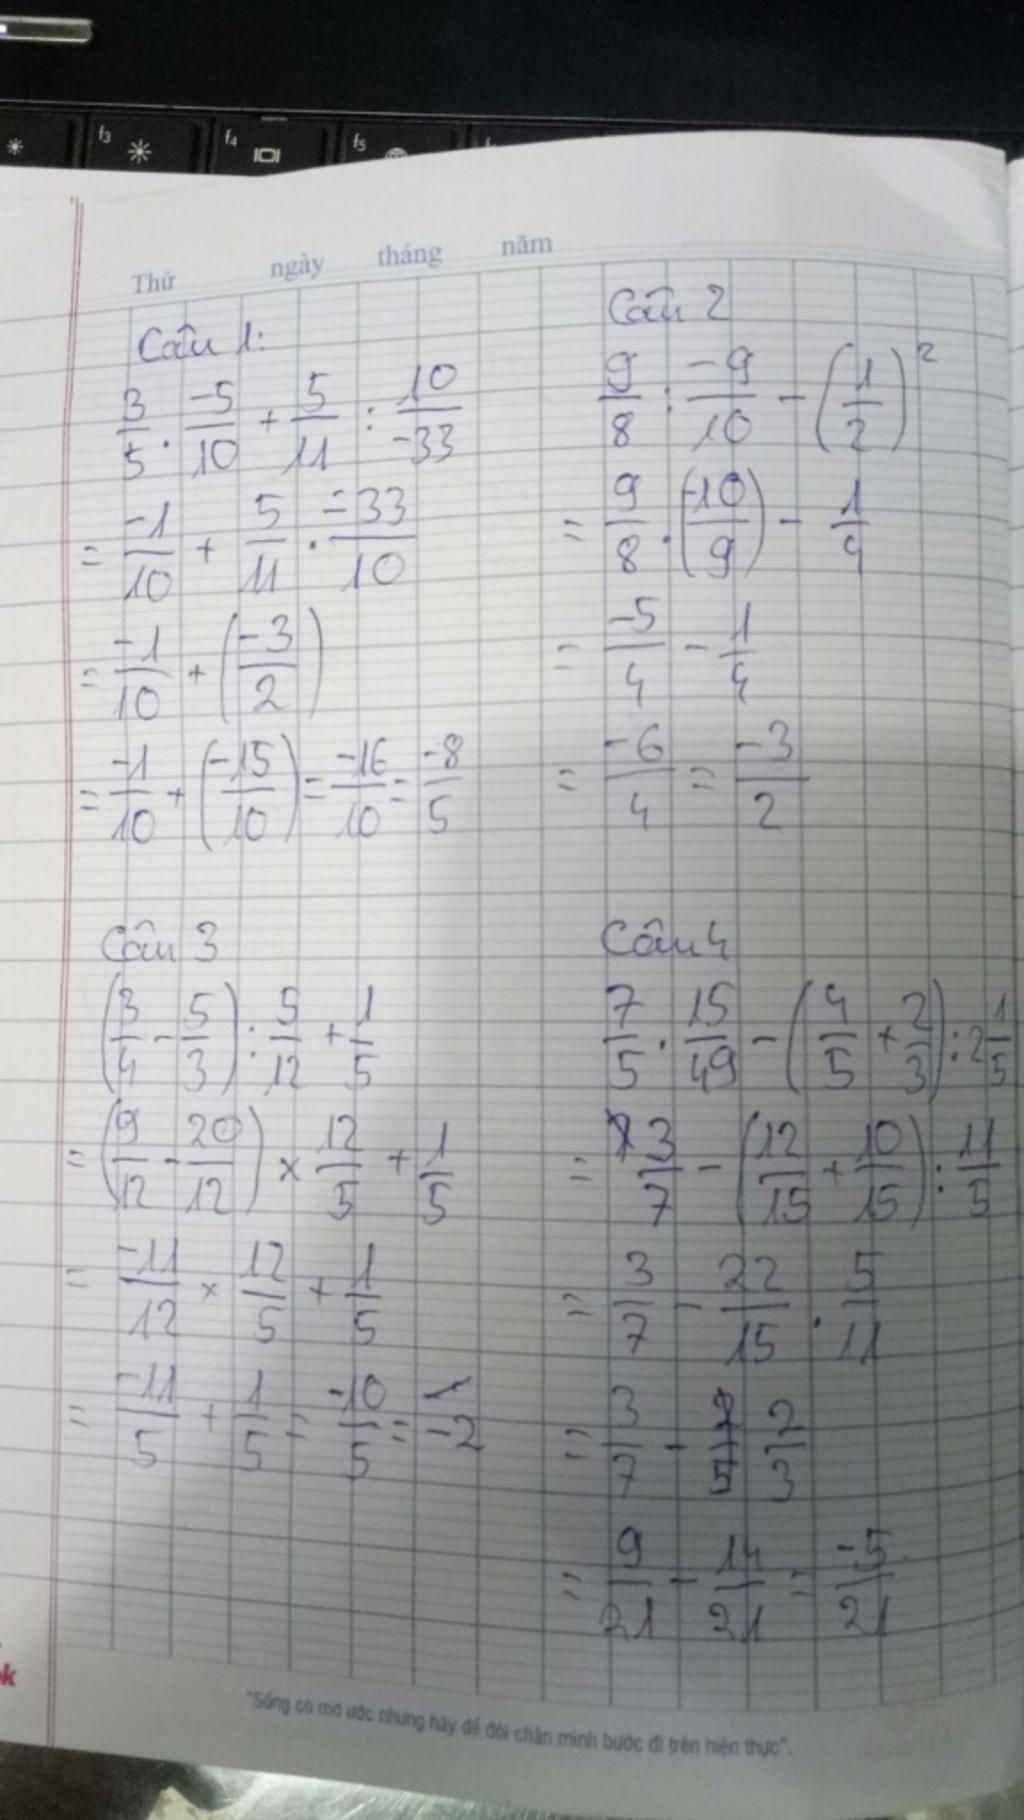 f3 f4 f5
Thứ ngày tháng năm
Câu 1:
3/5 . -5/10 + 5/11 : 10/-33
= -1/10 + 5/11 . -33/10
= -1/10 + (-3/2)
= -1/10 + (-15/10) = -16/10 = -8/5
Câu 2
9/8 : -9/10 - (1/2)²
= 9/8 . (-10/9) - 1/4
= -5/4 - 1/4
= -6/4 = -3/2
Câu 3
(3/4 - 5/3) : 5/12 + 1/5
= (9/12 - 20/12) × 12/5 + 1/5
= -11/12 × 12/5 + 1/5
= -11/5 + 1/5 = -10/5 = -2
Câu 4
7/5 . 15/49 - (4/5 + 2/3) : 2 1/5
= 3/7 - (12/15 + 10/15) : 11/5
= 3/7 - 22/15 . 5/11
= 3/7 - 2/3
= 9/21 - 14/21 = -5/21
"Sống có mơ ước nhưng hãy để đôi chân mình bước đi trên hiện thực".